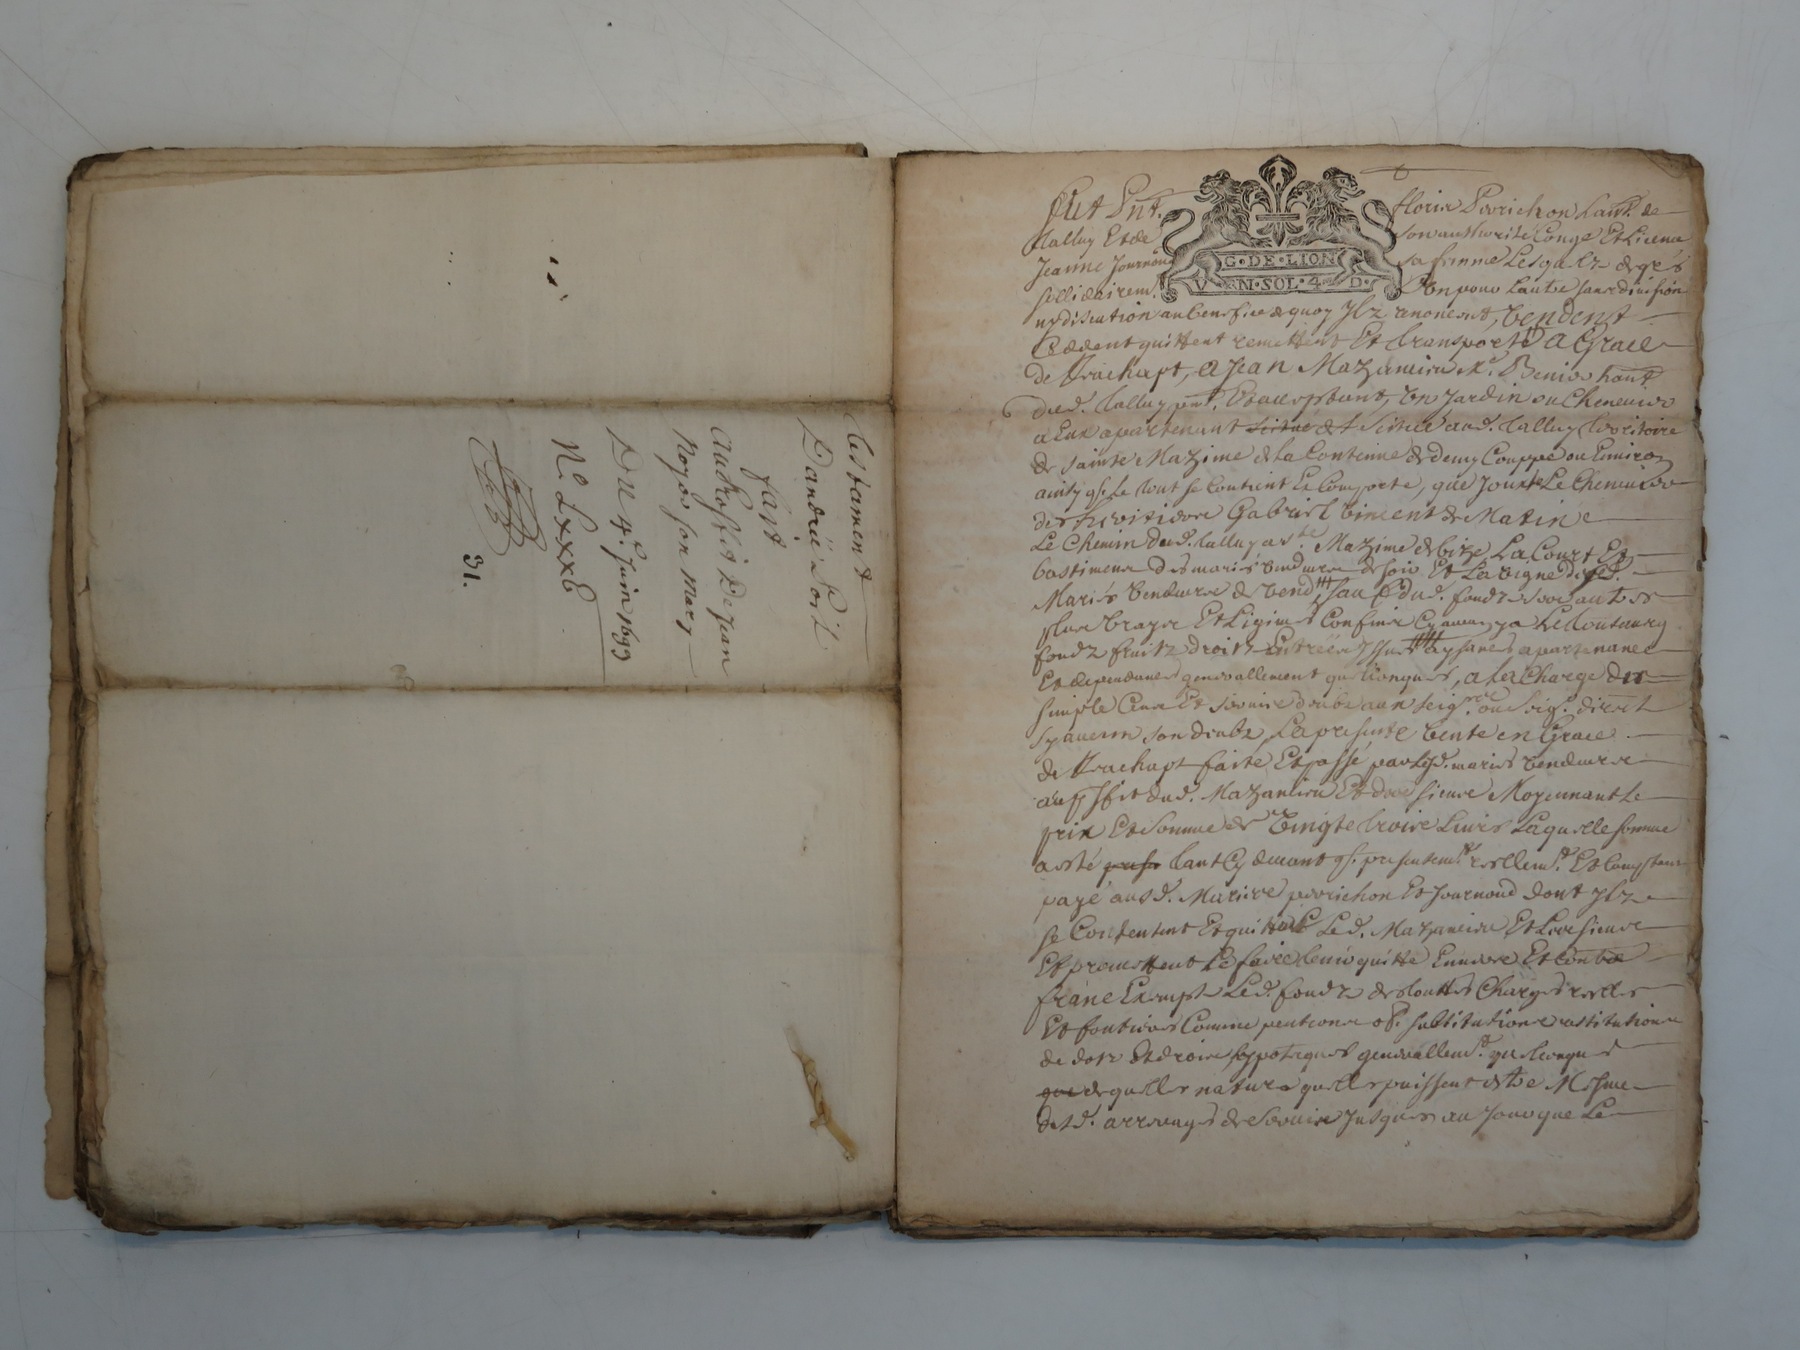 Testament
D'andrée Soil
fait
au proffit De Jean
Noyer son mary
Du 4.e Juin 1693
N.o LXXXE
31.
Fut Pnt.
florix Perrichon Labr. de
Talluy Et de
son authorité Congé Et Licence
Jeanne Journoud
sa femme Lesquelz de gré
sollidairem.t
G·DE·LION
V·N·SOL·4·D·
L'un pour L'autre sans division
ny discution au benefice de quoy Ilz renoncent, Vendent
Ceddent quittent remettent Et transporte A Grace
de Rachapt, A Jean Mazancieu M.e
dud. Talluy pnt. Et acceptant, Un Jardin ou Chenevier
a Eux apartenant scittué aud. Talluy territoire
de sainte Maxime de la Contenue de demy Couppe ou Environ
ainsy q. Le tout se Contient Et Comporte, que Jouxte Le Chenevier
des heritiers Gabriel Vincent de Matin
Le Chemin dud. Talluy a s.te Maxime de bize La Court Et
bastiment des mariés Vendeurs de soir Et La Vigne desd.
Mariés Vendeurs de Vend sauf dud. fondz ses autres
plus Vrayes Et Ligimes Confins Le tout avec
fondz fruitz droitz Entrées Issues aysances apartenances
Et dependances generallement quelconques, A La Charge des
simple Cens Et servis deubz aux seig.rs ou Seig.r direct
sy aucun son deubz, La presente Vente en Grace
de Rachapt faite Et passé par Lesd. mariés Vendeurs
au proffit dud. Mazancieu Et des siens Moyennant Le
prix Et Somme de Vingte trois Livres Laquelle somme
a esté tant Cy devant q. presentem.t reellem.t Et Comptant
payé ausd. Mariés perrichon Et Journoud dont Ilz
se Contentent Et quittent Led. Mazancieu Et Les siens
Et promettent Le faire tenir quitte Envers Et Contre
franc Exempt Led. fondz de touttes Charges reelles
Et fontieres Comme pentions substitutions restitutions
de dotz Et droitz hypoteques generallem.t quelconques
de quelles natures quelles puissent estre Mesme
desd. arrerages de Servis Jusques au Jour que Le